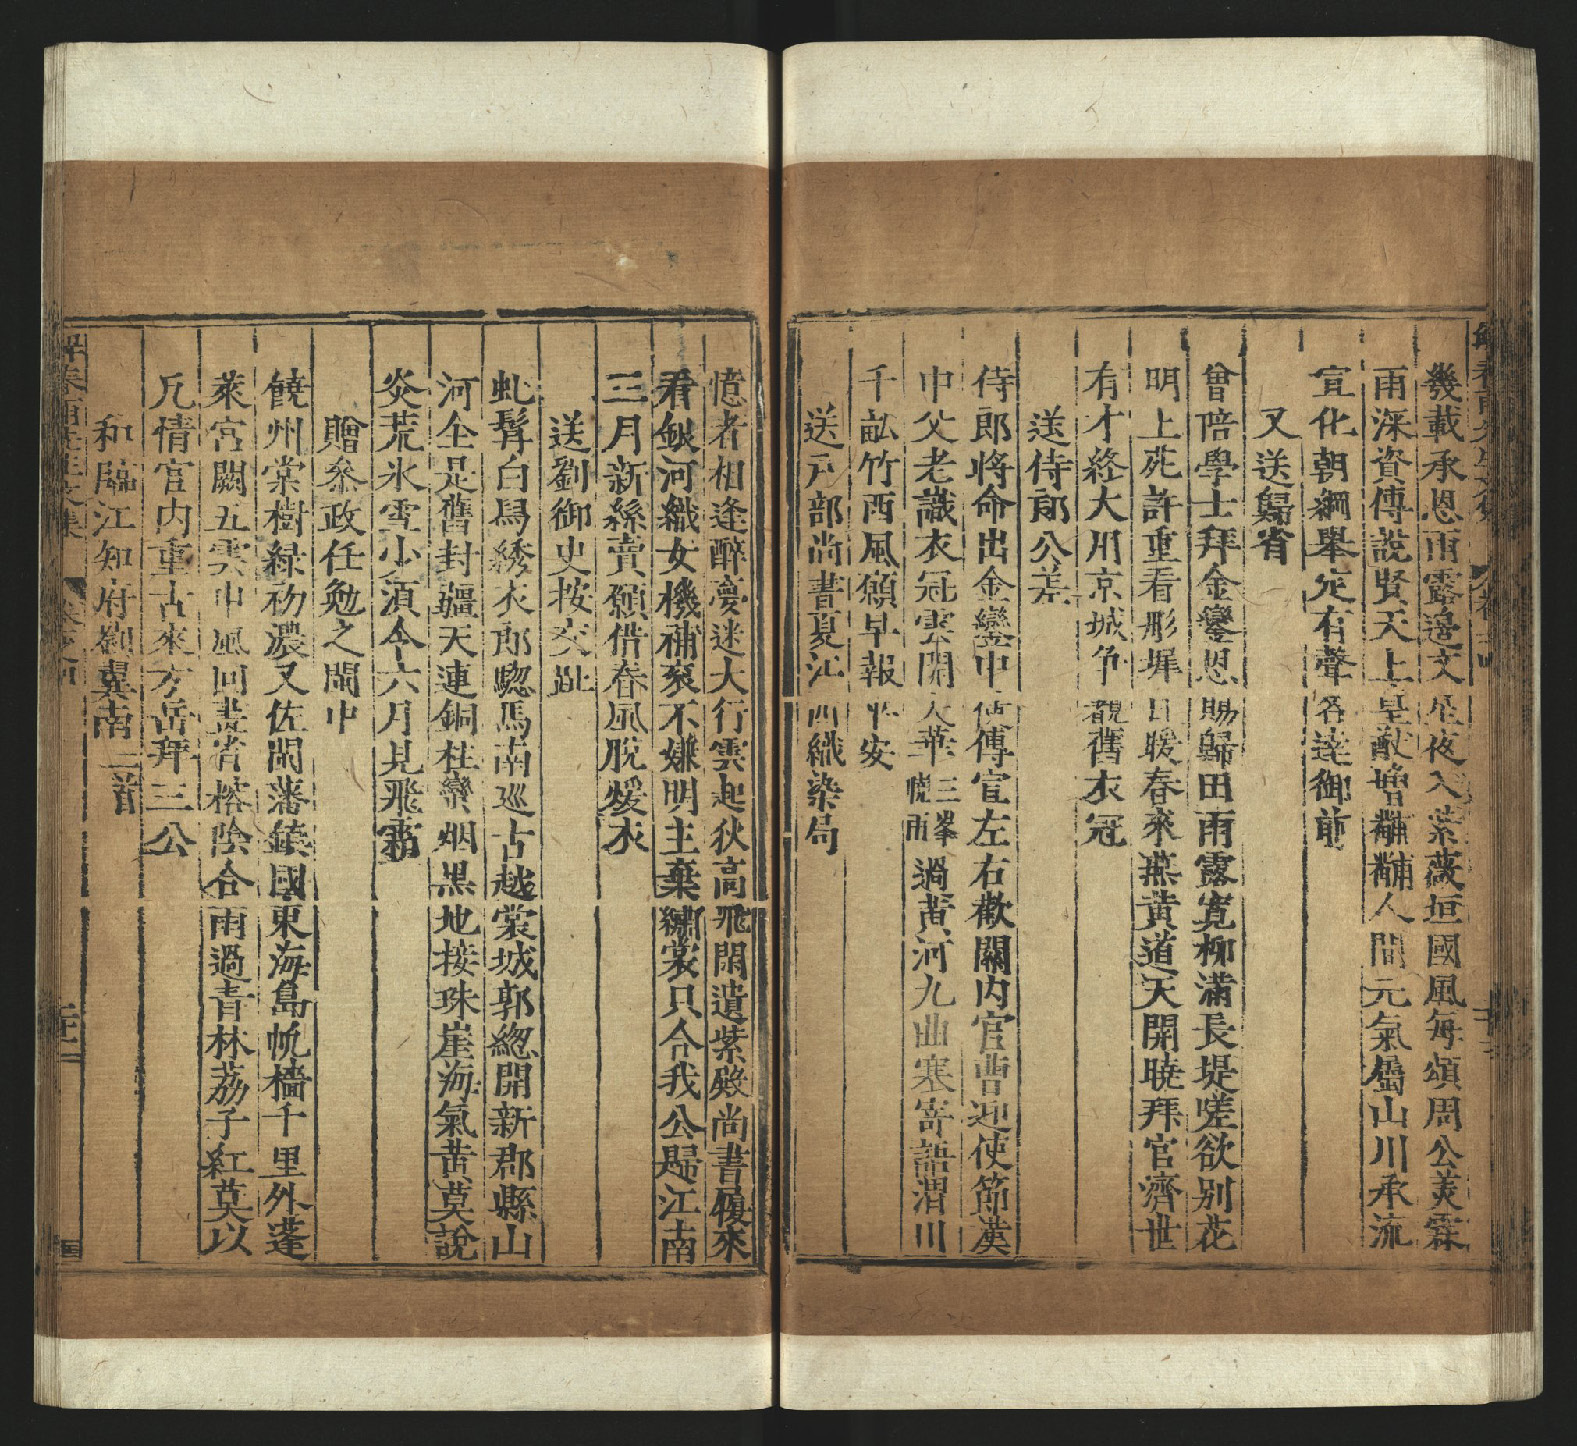 幾載承恩雨露邊文星夜入紫薇垣國風每頌周公美霖
雨深資傅說賢天上皇猷增黼黻人間元氣屬山川承流
宣化朝綱舉定有聲名達御前
又送歸省
曾陪學士拜金鑾恩賜歸田雨露寬柳滿長堤嗟欲別花
明上苑許重看彤墀日暖春來燕黃道天開曉拜官濟世
有才終大用京城爭覩舊衣冠
送侍郎公差
侍郎將命出金鑾中使傳宣左右歡關內官曹迎使節漢
中父老識衣冠雲開太華三峯晚雨過黃河九曲寒寄語渭川
千畝竹西風頻早報平安
送戶部尚書夏江西織染局
憶者相逢醉夢迷大行雲起狄高飛閑遺紫殿尚書履來
看銀河織女機補袞不嫌明主棄繡裳只合我公歸江南
三月新絲賣願借春風脫煖衣
送劉御史按交趾
虬髯白馬綉衣郎驄馬南廵古越裳城郭緫開新郡縣山
河全是舊封疆天連銅柱蠻烟黑地接珠崖海氣黃莫說
炎荒氷雪少須令六月見飛霜
贈參政任勉之閩中
饒州棠樹緑初濃又佐閩藩鎮國東海島帆檣千里外蓬
萊宮闕五雲中風回畫省榕陰合雨過青林荔子紅莫以
凡情官內重古來方岳拜三公
和臨江知府劉冀南二首